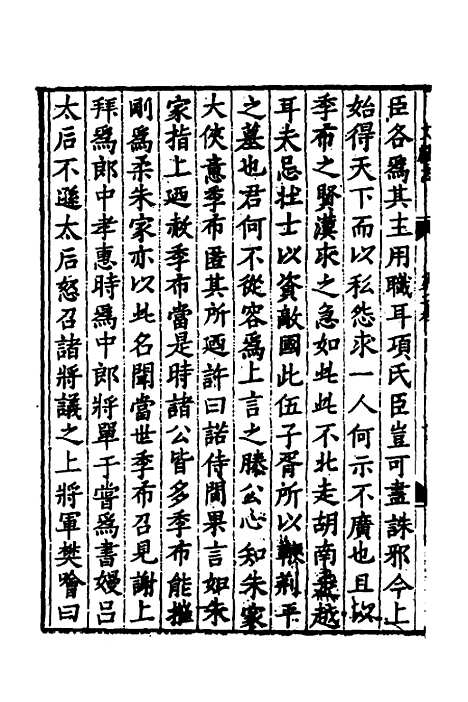 臣各爲其主用職耳項氏臣豈可盡誅邪今上
始得天下而以私怨求一人何示不廣也且以
季布之賢漢求之急如此此不北走胡南走越
耳夫忌壯士以資敵國此伍子胥所以鞭荆平
之墓也君何不從容爲上言之滕公心知朱家
大俠意季布匿其所迺許曰諾侍間果言如朱
家指上迺赦季布當是時諸公皆多季布能摧
剛爲柔朱家亦以此名聞當世季布召見謝上
拜爲郎中孝惠時爲中郎將單于嘗爲書嫚吕
太后不遜太后怒召諸將議之上將軍樊噲曰